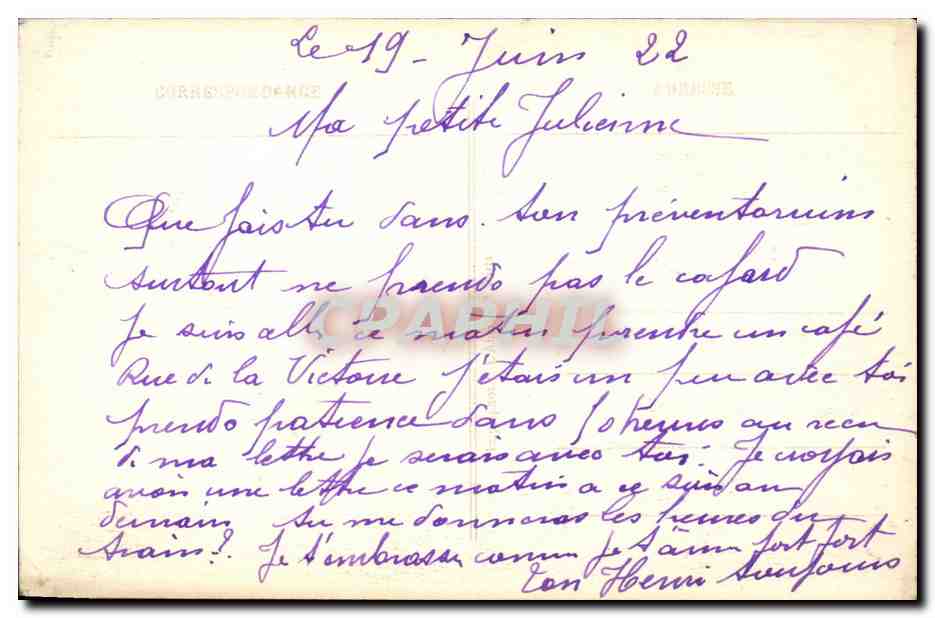 Le 19 - Juin 22
CORRESPONDANCE ADRESSE
Ma petite Julienne
Que fais tu dans ton préventoruim
surtout ne prends pas le cafard
Je suis allé ce matin prendre un café
CPAPHIL
Rue de la Victoire j'étais un peu avec toi
prends patience dans heures au recu
de ma lettre je serais avec toi. Je croyais
avoir une lettre ce matin a ce soir ou
demain tu me donneras les heures du
train? Je t'embrasse comme je t'aime fort fort
Ton Henri toujours